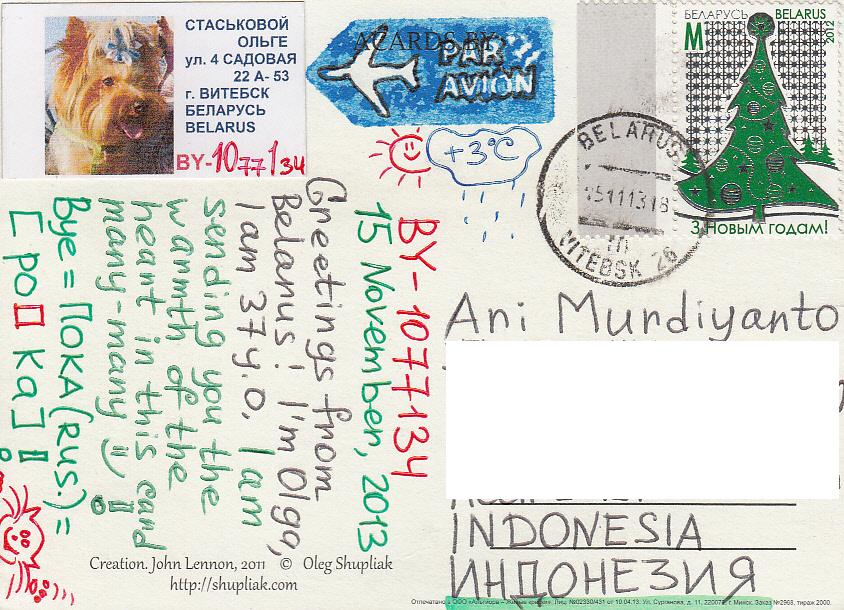 СТАСЬКОВОЙ
ОЛЬГЕ
ул. 4 САДОВАЯ
22 А- 53
г. ВИТЕБСК
БЕЛАРУСЬ
BELARUS
BY-1077134
ACARDS.BY
PAR
AVION
+3°C
БЕЛАРУСЬ BELARUS
M
2012
З Новым годам!
BELARUS
VITEBSK 26
BY-1077134
15 November, 2013
Greetings from
Belarus! I'm Olga,
I am 37 y.o. I am
sending you the
warmth of the
heart in this card
many-many
Bye = ПОКА (RUS.) =
[ poʊ̯ ka ] !
Ani Murdiyanto
INDONESIA
ИНДОНЕЗИЯ
Creation. John Lennon, 2011 © Oleg Shupliak
http://shupliak.com